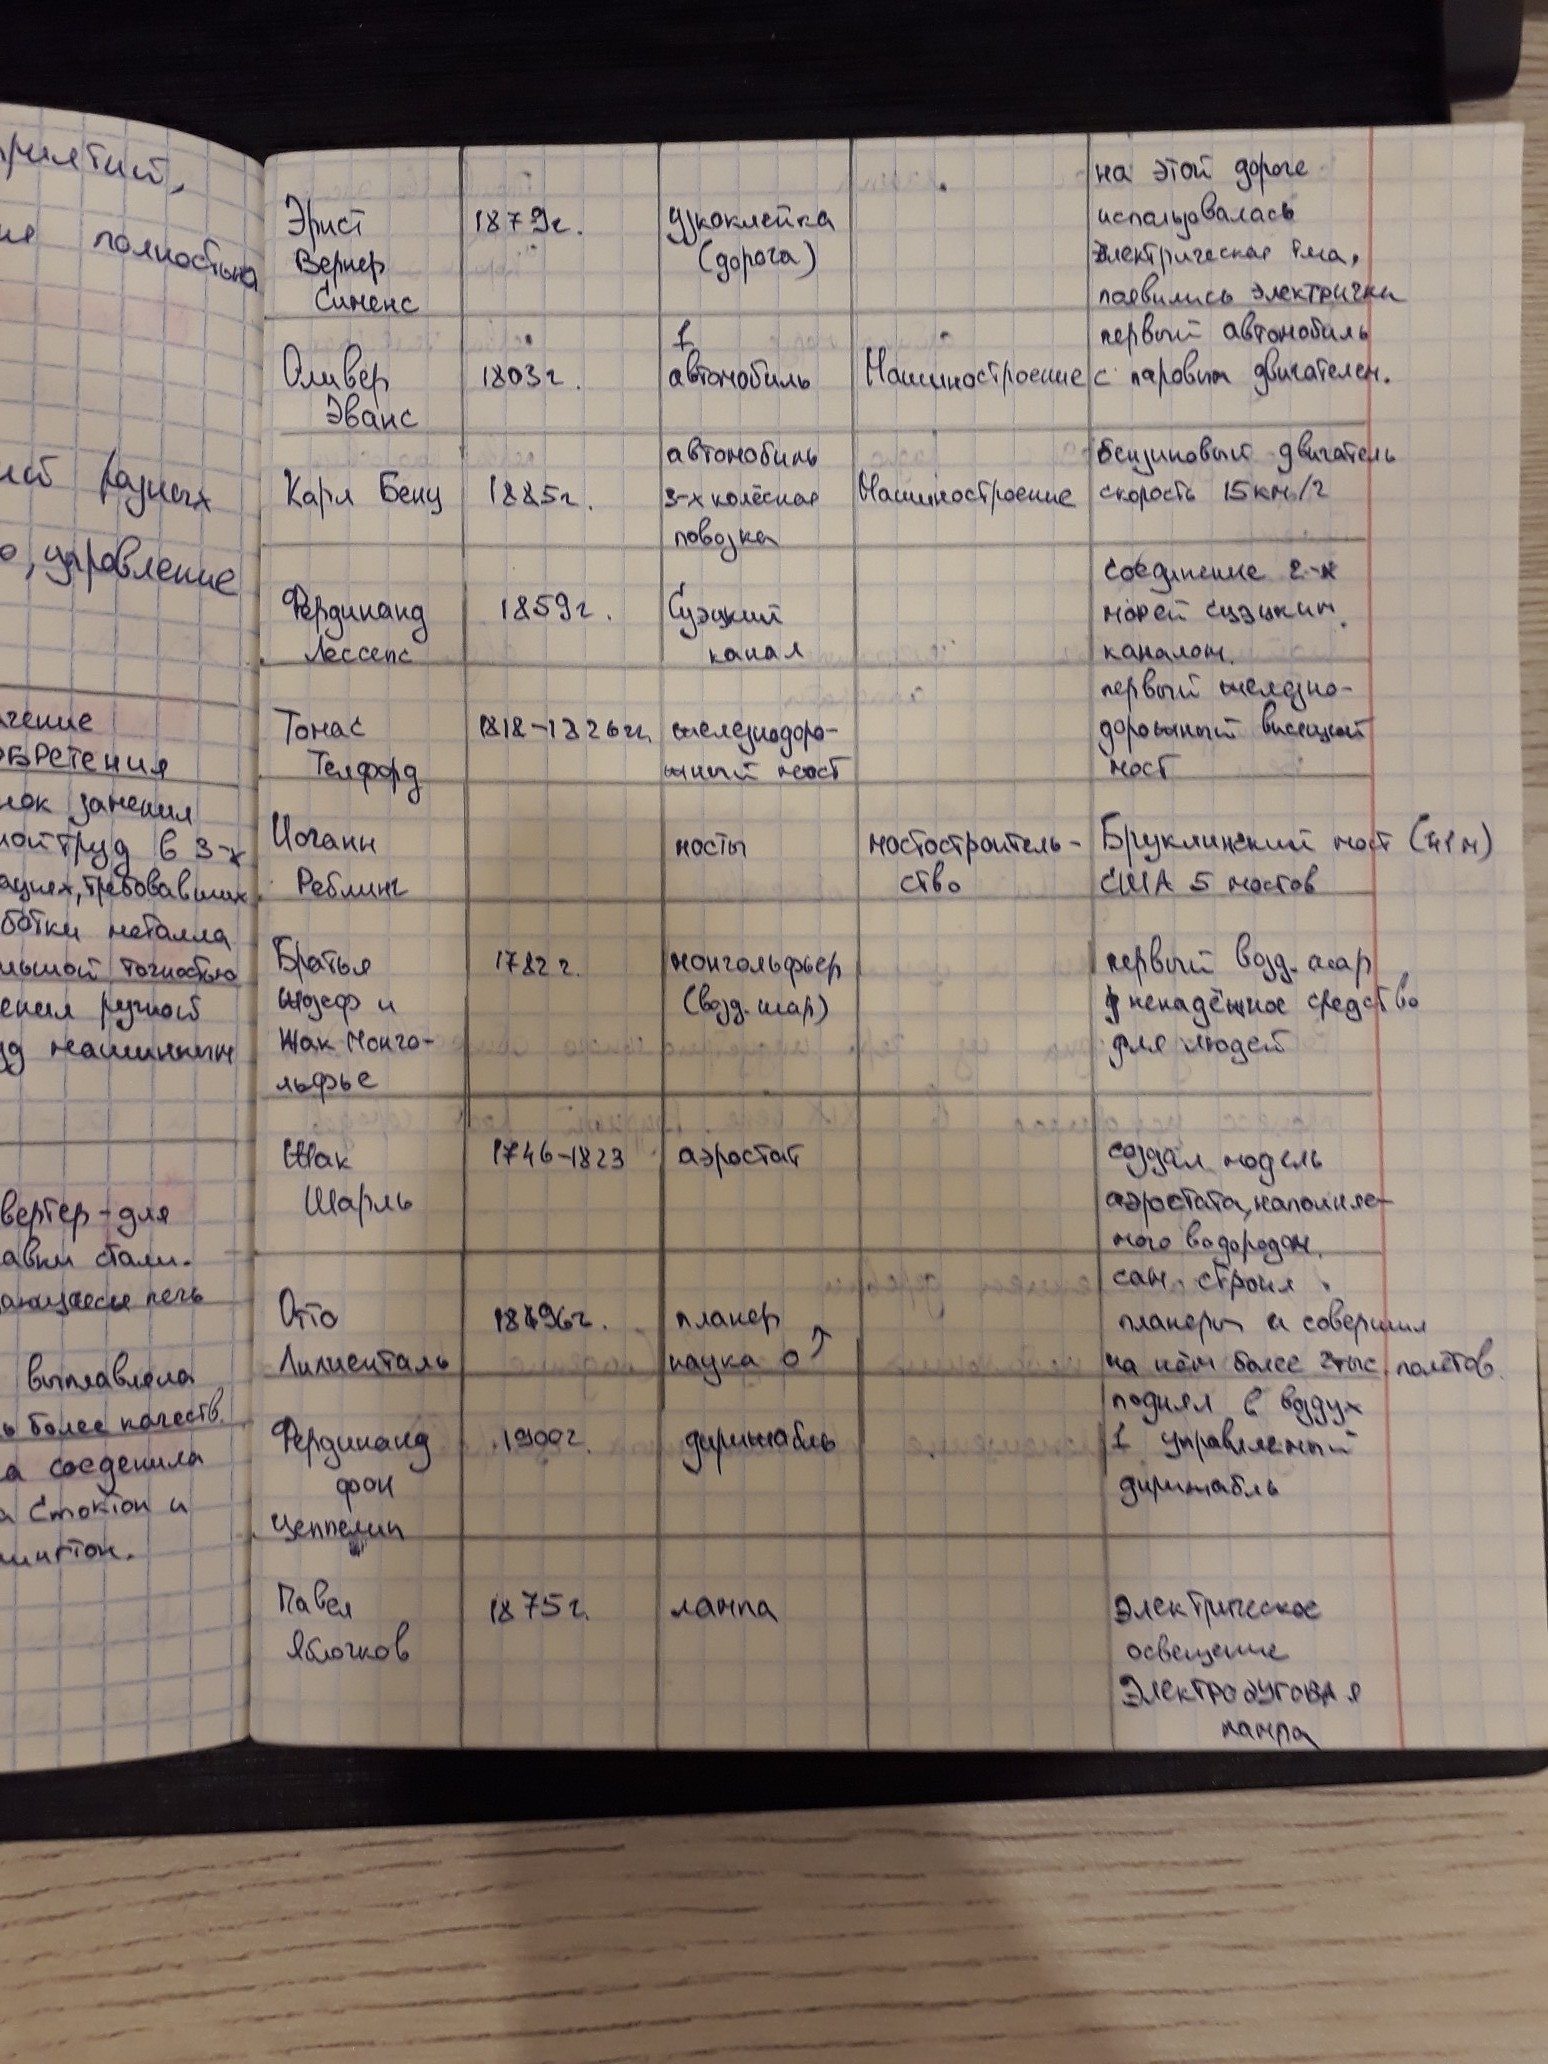 приятий,
полностью
разных
управление
чение
ОБРЕТЕНИЯ
нок заменил
ной труд в 3-х
ациях, требовавших
ботки металла
льшой точностью
енил ручной
уд машинным
вертер - для
авки стали.
ающаяся печь
выплавляла
ь более качеств.
а соеденила
а Стоктон и
лингтон.
Эрнст
Вернер
Сименс
1879г.
узкоклейка
(дорога)
на этой дороге
использовалась
электрическая тяга,
появились электрички
Оливер
Эванс
1803г.
1
автомобиль
Машиностроение
первый автомобиль
с паровым двигателем.
Карл Бенц
1885г.
автомобиль
3-х колёсная
повозка
Машиностроение
бензиновый двигатель
скорость 15км/г
Фердинанд
Лессепс
1859г.
Суэцкий
канал
соединение 2-х
морей суэцким
каналом.
Томас
Телфорд
1818-1826гг.
железнодоро-
жный мост
первый железно-
дорожный висящий
мост
Иоганн
Реблинг
мосты
мостостроитель-
ство
Бруклинский мост (н1м)
США 5 мостов
Братья
Жозеф и
Жак Монго-
льфье
1782г.
монгольфьер
(возд. шар)
первый возд. шар
ненадёжное средство
для людей
Жак
Шарль
1746-1823
аэростат
создал модель
аэростата, наполняе-
мого водородом.
Отто
Лилиенталь
1896г.
планер
наука о ↑
сам строил
планеры и совершил
на нём более 2тыс. полётов.
Фердинанд
фон
Цеппелин
1900г.
дирижабль
поднял в воздух
1 управляемый
дирижабль
Павел
Яблочков
1875г.
лампа
электрическое
освещение
электродуговая
лампа